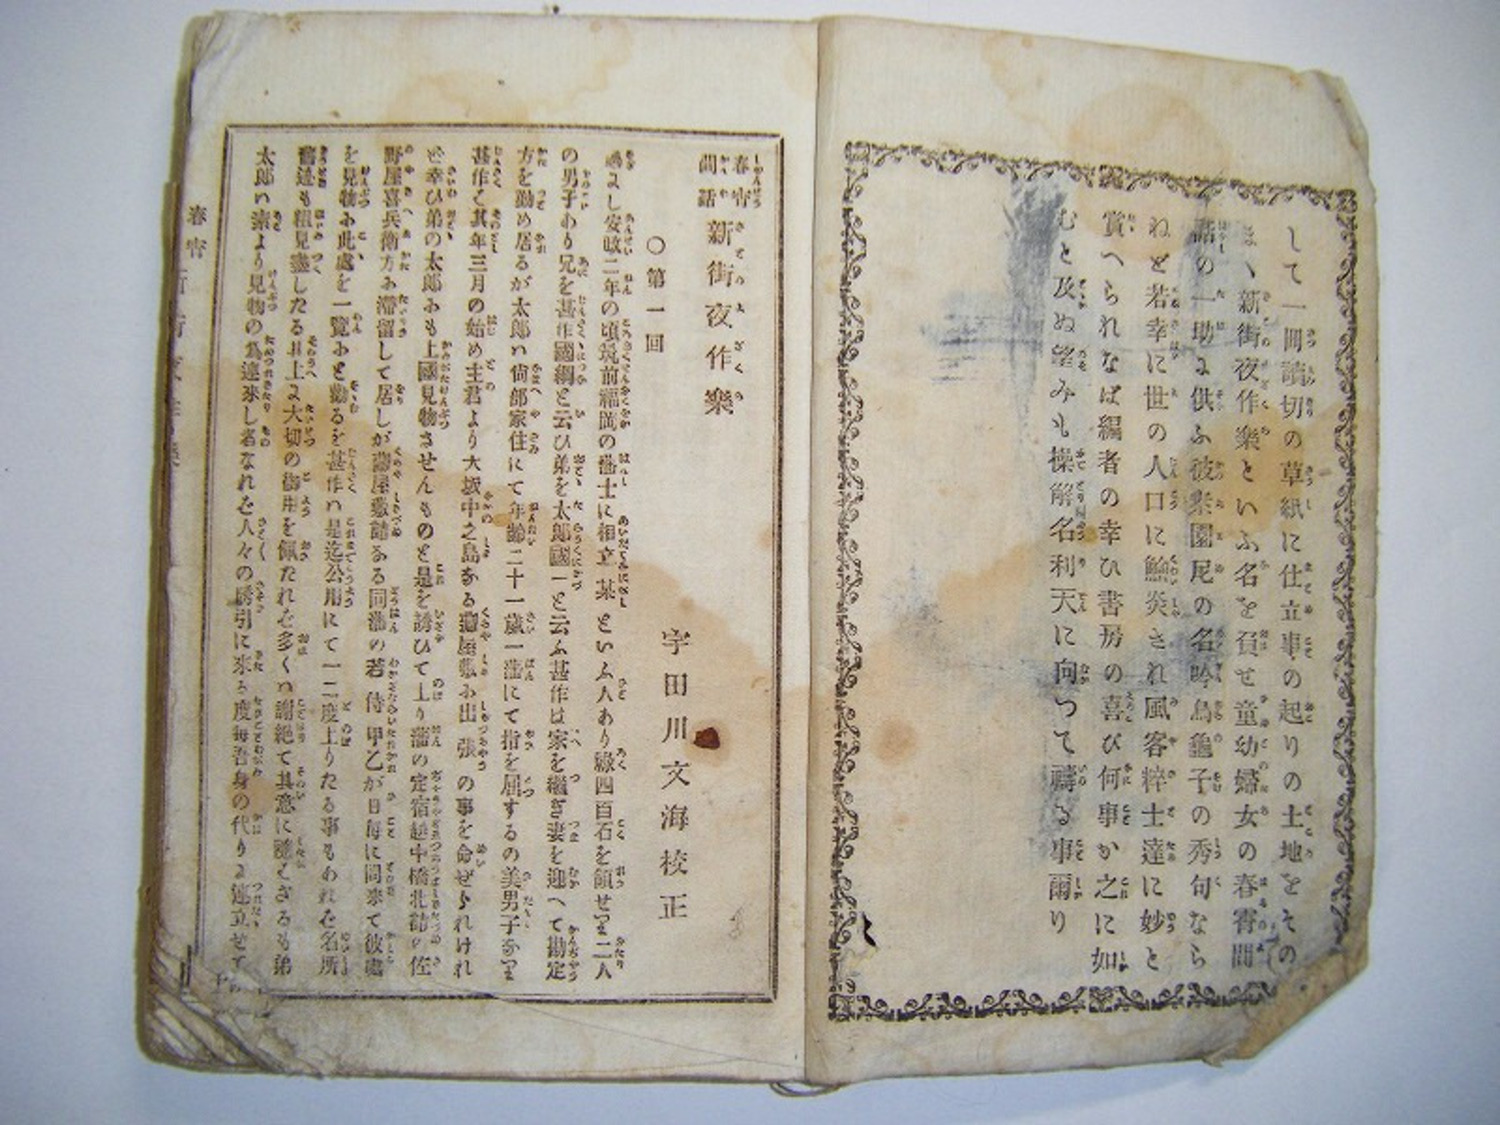 して一冊讀切の草紙に仕立事の起りの土地をその
まゝ新街夜作樂といふ名を負せ童幼婦女の春宵間
話の一助に供ふ彼楽園尼の名吟鳥龜子の秀句なら
ねど若幸に世の人口に鱠炙され風客粹士達に妙と
賞へられなば編者の幸ひ書房の喜び何事か之に如
むと及ぬ望みも操觧名利天に向つて禱る事爾り
春宵間話 新街夜作樂
宇田川文海校正
○第一回
よし安政二年の頃筑前福岡の藩士に相立某といふ人あり祿四百石を領せり二人
の男子あり兄を甚作國綱と云ひ弟を太郎國一と云ふ甚作は家を繼ぎ妻を迎へて勘定
方を勤め居るが太郎ハ尚部家住にて年齢二十一歳一藩にて指を屈するの美男子なり
甚作ハ其年三月の始め主君より大坂中之島なる藏屋敷へ出張の事を命ぜられけれ
ど幸ひ弟の太郎にも上國見物させんものと是を誘ひて上り藩の定宿越中橋北詰の佐
野屋喜兵衛方に滞留して居しが藏屋敷詰なる同藩の若侍甲乙が日毎に問来て彼處
を見物に此處を一覧にと勸るを甚作ハ是迄公用にて一二度上りたる事もあれど名所
舊迹も粗見盡したる其上に大切の御用を佩たれど多くハ謝絶て其意に隨はざるも弟
太郎ハ素より見物の爲連來し者なれど人々の誘引に來る度毎吾身の代りに連立せて
春宵 新街夜作樂